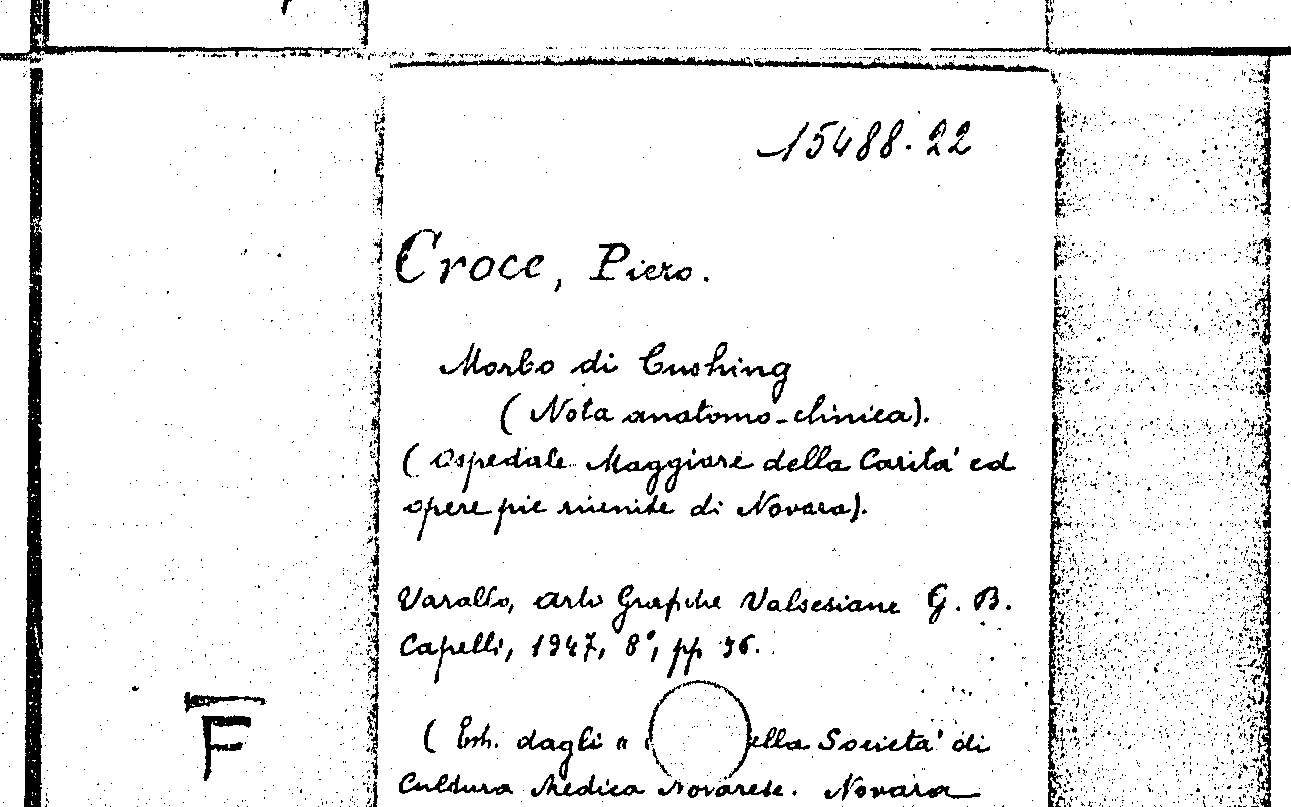 15488.22
Croce, Piero.
Morbo di Cushing
(Nota anatomo-clinica).
(Ospedale Maggiore della Carità ed
opere pie riunite di Novara).
Varallo, Arti Grafiche Valsesiane G. B.
Capelli, 1947, 8°, pp 36.
F
(Estr. dagli " ella Società di
Cultura Medica Novarese. Novara